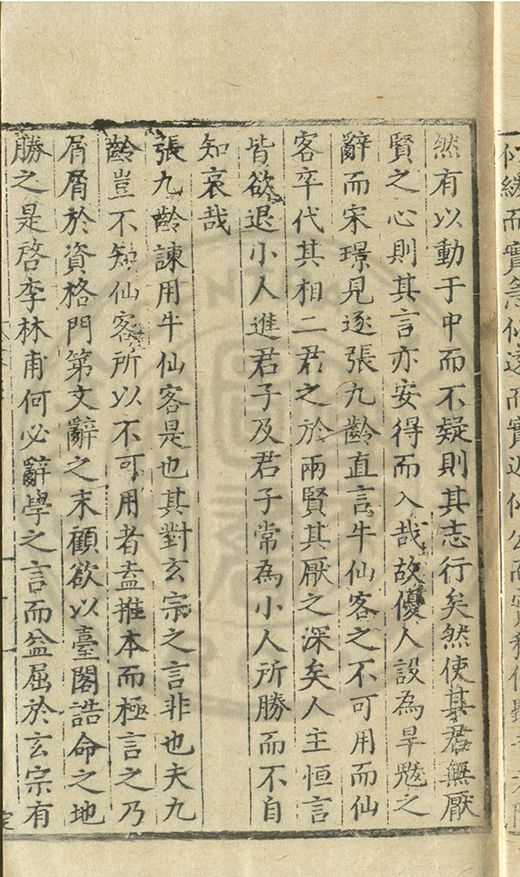 然有以動于中而不疑則其志行矣然使其君無厭
賢之心則其言亦安得而入哉故優人設為旱魃之
辭而宋璟見逐張九齡直言牛仙客之不可用而仙
客卒代其相二君之於兩賢其厭之深矣人主恒言
皆欲退小人進君子及君子常為小人所勝而不自
知哀哉
張九齡諫用牛仙客是也其對玄宗之言非也夫九
齡豈不知仙客所以不可用者盍推本而極言之乃
屑屑於資格門第文辭之末顧欲以臺閣誥命之地
勝之是啓李林甫何必辭學之言而益屈於玄宗有